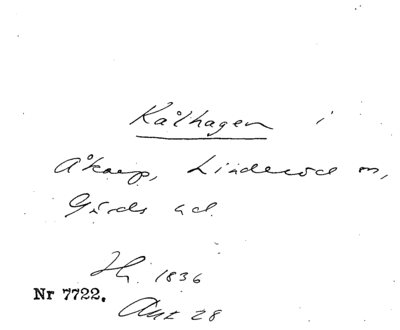 Kålhagen i
Åkarp, Linderöd sn,
Gärds hd.
Hh. 1836
Nr 7722.
Akt 28